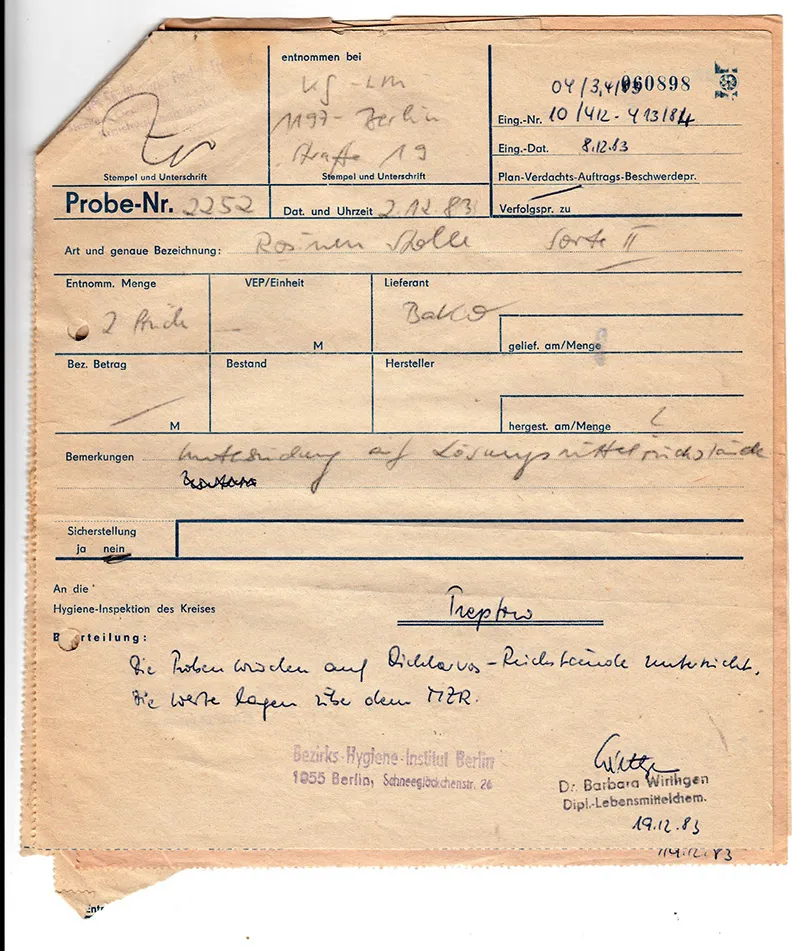 entnommen bei
KG-LM
1197-Berlin
Straße 19
Stempel und Unterschrift
Stempel und Unterschrift
04/3,4/83
060898
Eing.-Nr. 10/412-413/84
Eing.-Dat. 8.12.83
Plan-Verdachts-Auftrags-Beschwerdepr.
Verfolgspr. zu
Probe-Nr. 2252
Dat. und Uhrzeit 2.12.83
Art und genaue Bezeichnung: Rosinen Stolle Sorte II
Entnomm. Menge
2 Stück
VEP/Einheit
–
M
Lieferant
BaKo
gelief. am/Menge
Bez. Betrag
M
Bestand
Hersteller
hergest. am/Menge
Bemerkungen Untersuchung auf Lösungsmittelrückstände
Sicherstellung
ja nein
An die
Hygiene-Inspektion des Kreises Treptow
B rteilung:
Die Proben wurden auf Dichlorvos-Rückstände untersucht.
Die Werte lagen über dem MZR.
Bezirks-Hygiene-Institut Berlin
1055 Berlin, Schneeglöckchenstr. 26
Dr. Barbara Wirthgen
Dipl.-Lebensmittelchem.
19.12.83
19.12.83
Entn